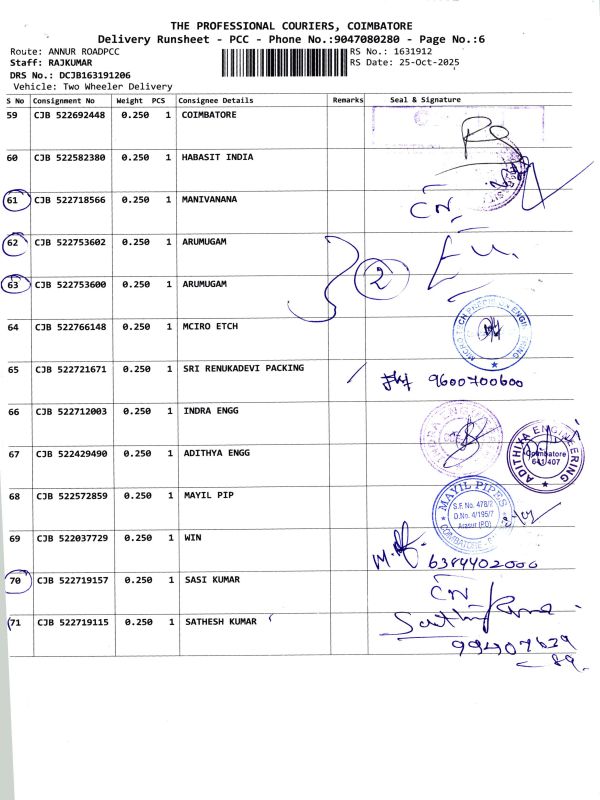 THE PROFESSIONAL COURIERS, COIMBATORE
Delivery Runsheet - PCC - Phone No.:9047080280 - Page No.:6
Route: ANNUR ROADPCC RS No.: 1631912
Staff: RAJKUMAR RS Date: 25-Oct-2025
DRS No.: DCJB163191206
Vehicle: Two Wheeler Delivery
S No Consignment No Weight PCS Consignee Details Remarks Seal & Signature
59 CJB 522692448 0.250 1 COIMBATORE
60 CJB 522582380 0.250 1 HABASIT INDIA
61 CJB 522718566 0.250 1 MANIVANANA CN
62 CJB 522753602 0.250 1 ARUMUGAM
2
63 CJB 522753600 0.250 1 ARUMUGAM
64 CJB 522766148 0.250 1 MCIRO ETCH
65 CJB 522721671 0.250 1 SRI RENUKADEVI PACKING 9600700600
66 CJB 522712003 0.250 1 INDRA ENGG
67 CJB 522429490 0.250 1 ADITHYA ENGG ADITHIYA ENGINEERING Coimbatore 641 407
68 CJB 522572859 0.250 1 MAYIL PIP MAYIL PIPES
S.F. No. 478/2
D.No. 4/195/7
Arasur (PO)
COIMBATORE
69 CJB 522037729 0.250 1 WIN 6384402000
70 CJB 522719157 0.250 1 SASI KUMAR CN
71 CJB 522719115 0.250 1 SATHESH KUMAR